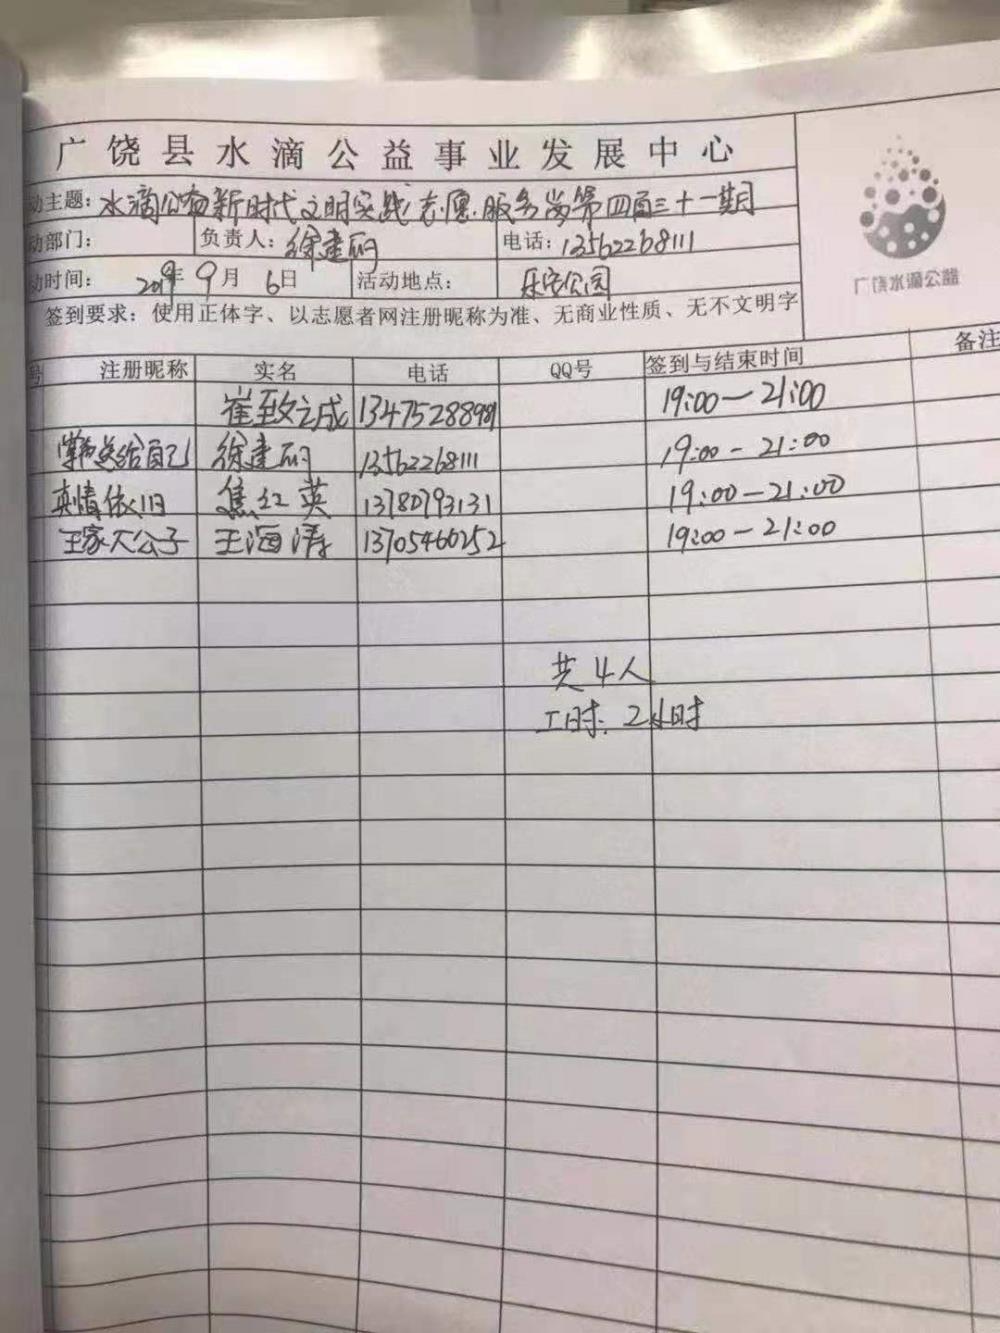 广饶县水滴公益事业发展中心
动主题：水滴公益新时代文明实践志愿服务岗第四百三十一期
动部门： 负责人：徐建丽 电话：13562268111
动时间： 2019年9月6日 活动地点： 乐安公园
签到要求：使用正体字、以志愿者网注册昵称为准、无商业性质、无不文明字
广饶水滴公益
号 注册昵称 实名 电话 QQ号 签到与结束时间 备注
崔致成 13475288981 19:00—21:00
送给自己 徐建丽 13562268111 19:00-21:00
真情依旧 焦红英 13780793131 19:00-21:00
王家大公子 王海涛 13705466252 19:00-21:00
共4人
工时：2小时